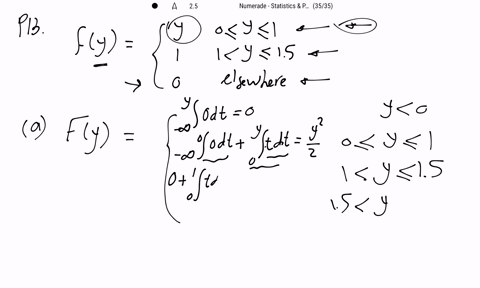 2.5 Numerade - Statistics & P... (35/35)
P13. f(y) = { y 0 ≤ y ≤ 1 ←
1 1 < y ≤ 1.5 ←
→ 0 elsewhere ←
(a) F(y) = { ∫_{-∞}^{y} 0dt = 0 y < 0
∫_{-∞}^{0} 0dt + ∫_{0}^{y} tdt = y²/2 0 ≤ y ≤ 1
0 + ∫_{0}^{1} td 1 < y ≤ 1.5
1.5 < y